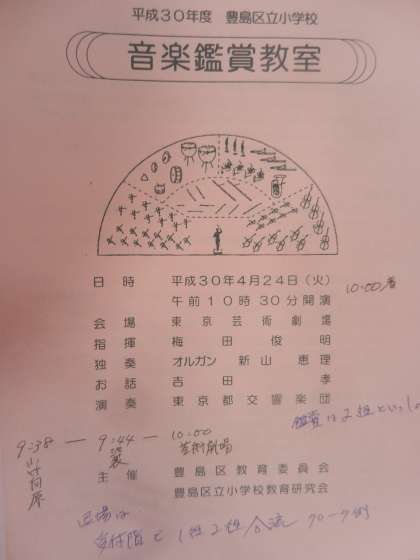 平成30年度 豊島区立小学校
音楽鑑賞教室
日時 平成30年4月24日(火)
午前10時30分開演
10:00着
会場 東京芸術劇場
指揮 梅田俊明
独奏 オルガン 新山恵理
お話 吉田孝
演奏 東京都交響楽団
鑑賞は2組といっしょ
9:38 — 9:44 — 10:00
芸術劇場
主催 豊島区教育委員会
豊島区立小学校教育研究会
退場は
1組2組 合流